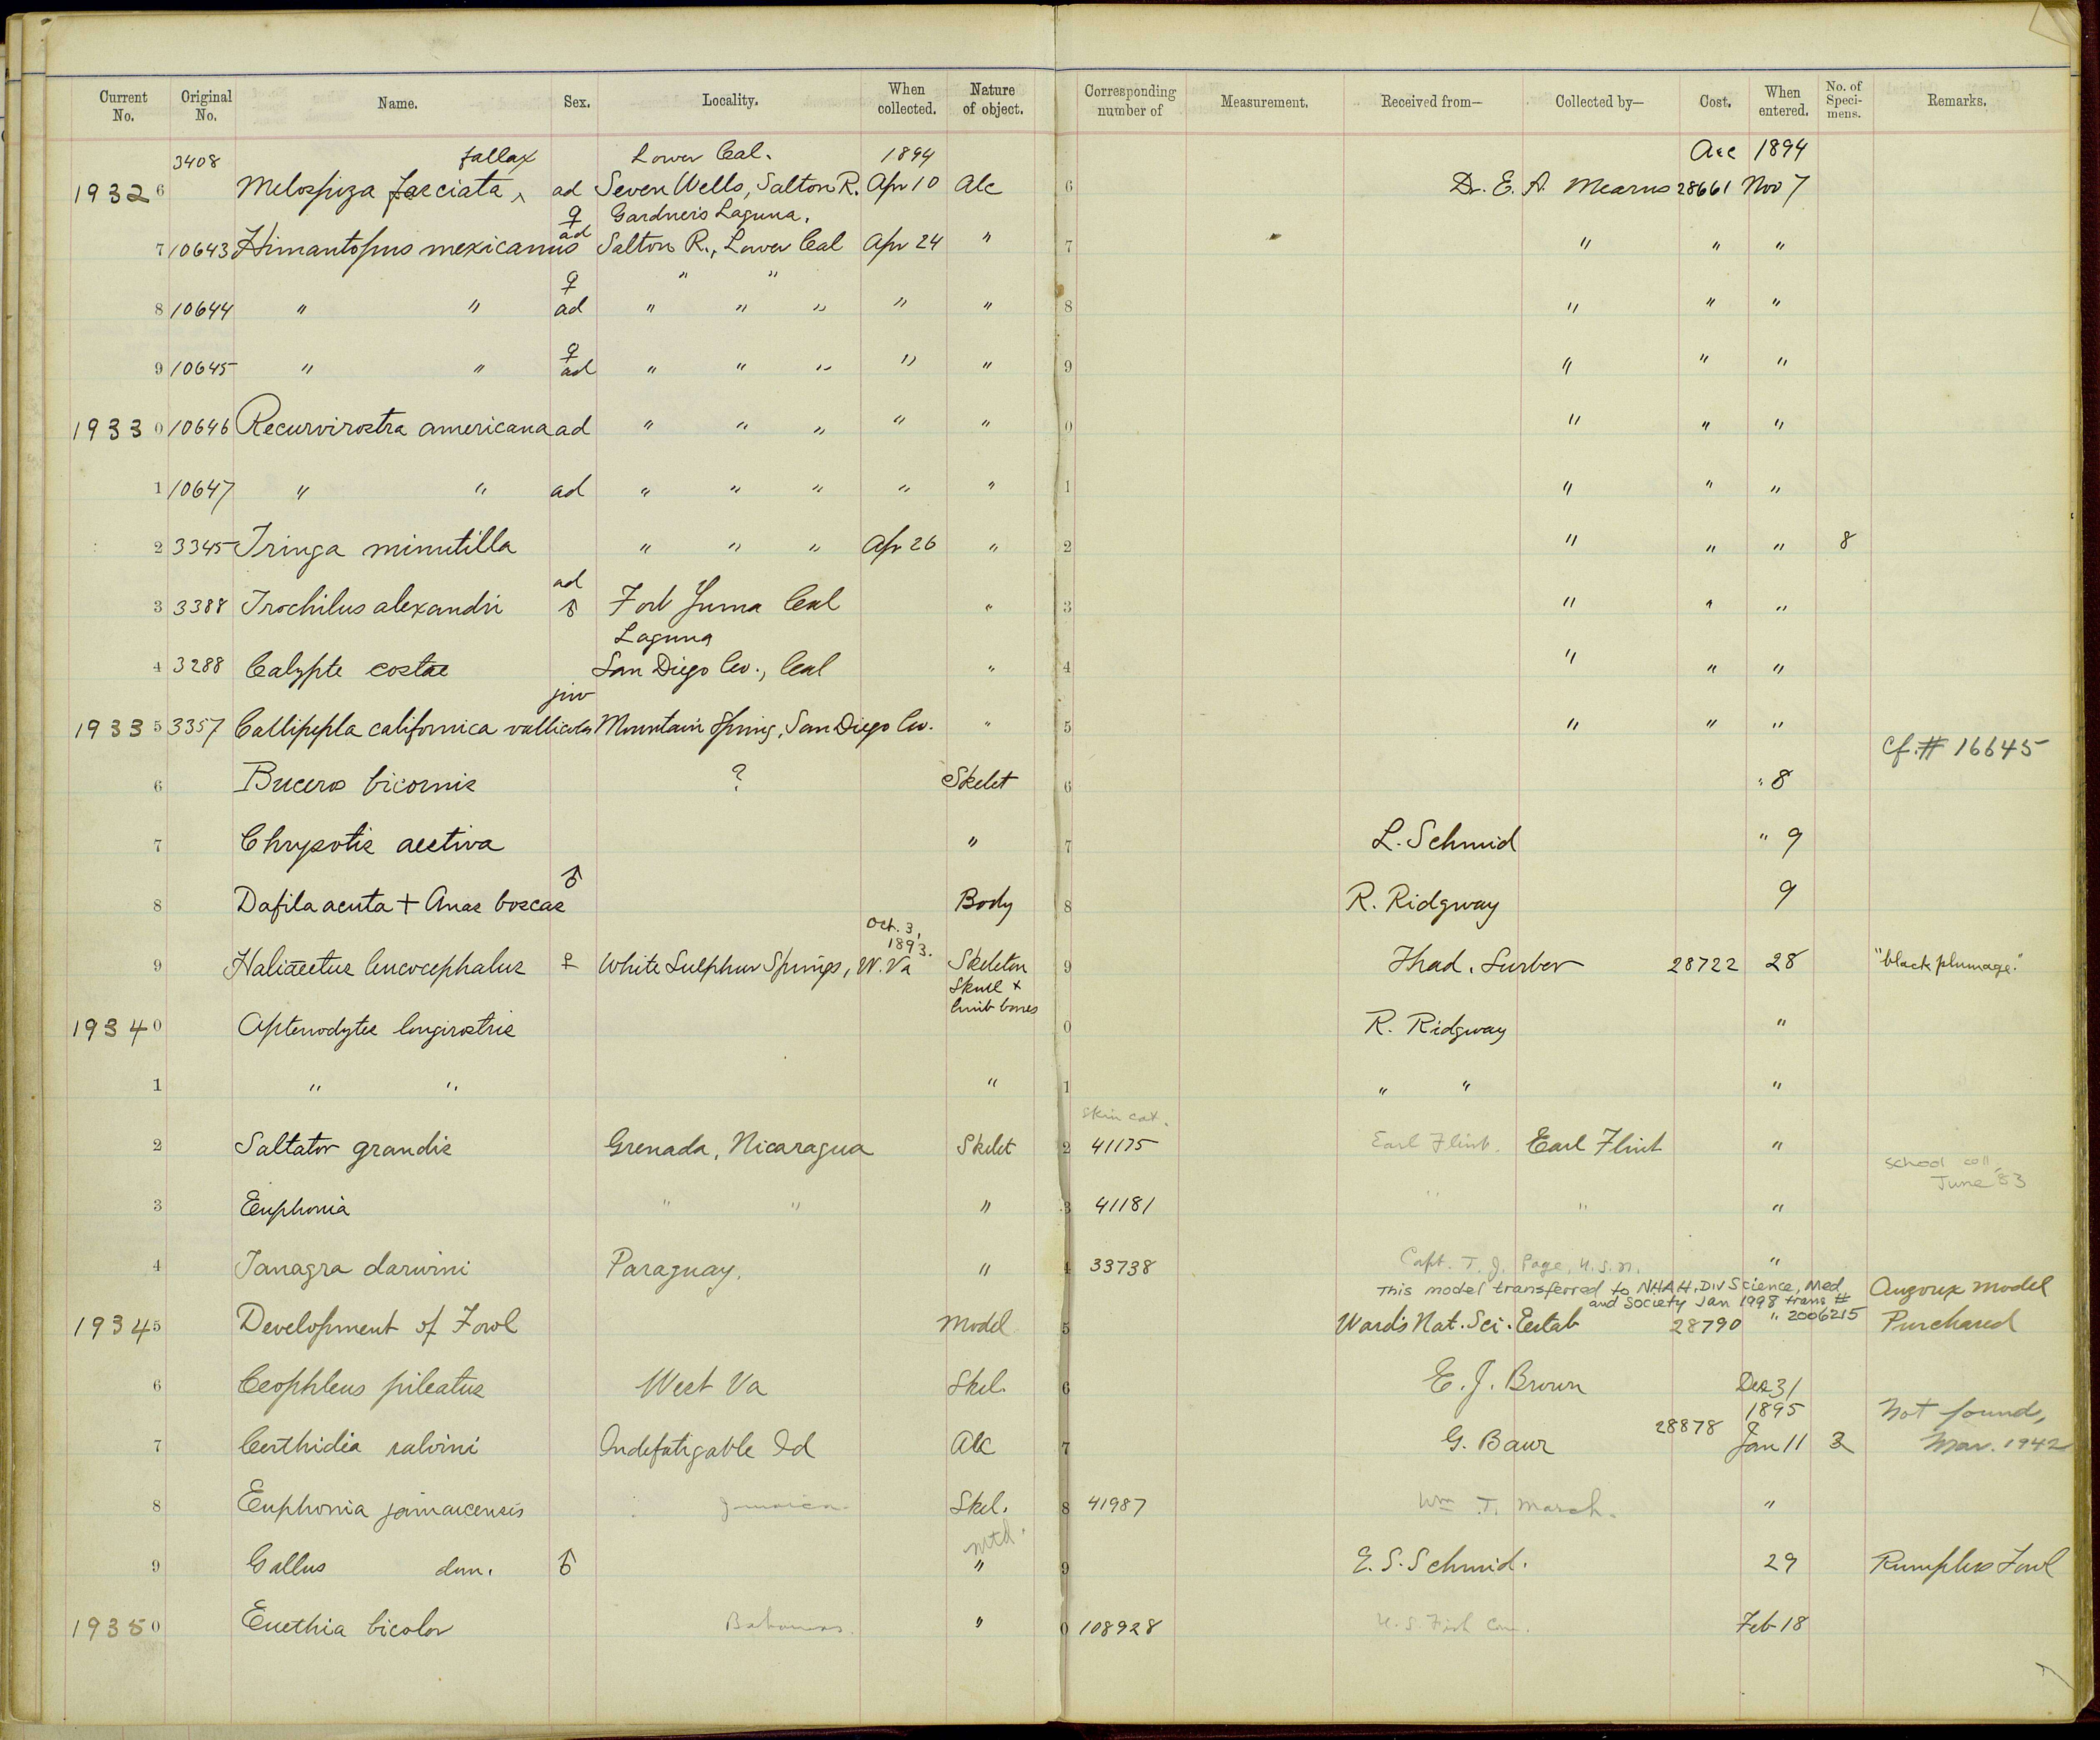 Current No. Original No. Name. Sex. Locality. When collected. Nature of object. Corresponding number of Measurement. Received from— Collected by— Cost. When entered. No. of Specimens. Remarks.
3408 fallax Lower Cal. 1894 Acc 1894
1932 6 Melospiza fasciata ^ ad Seven Wells, Salton R. Apr 10 Alc 6 Dr. E. A. Mearns 28661 Nov 7
♀ Gardner's Laguna.
7 10643 Himantopus mexicanus ad Salton R., Lower Cal Apr 24 " 7 " " "
♀ " "
8 10644 " " ad " " " " " 8 " " "
♀
9 10645 " " ad " " " " " 9 " " "
1933 0 10646 Recurvirostra americana ad " " " " " 0 " " "
1 10647 " " ad " " " " " 1 " " "
2 3345 Tringa minutilla " " " Apr 26 " 2 " " " 8
ad
3 3388 Trochilus alexandri ♂ Fort Yuma Cal " 3 " " "
Laguna
4 3288 Calypte costae San Diego Co., Cal " 4 " " "
juv
1933 5 3357 Callipepla californica vallicola Mountain Spring, San Diego Co. " 5 " " "
cf. # 16645
6 Buceros bicornis ? Skelet 6 " 8
7 Chrysotis aestiva " 7 L. Schmid " 9
♂
8 Dafila acuta + Anas boscas Body 8 R. Ridgway 9
Oct. 3, 1893.
9 Haliaeetus leucocephalus ♀ White Sulphur Springs, W. Va Skeleton 9 Thad. Surber 28722 28 "black plumage."
Skull + limb bones
1934 0 Aptenodytes longirostris 0 R. Ridgway "
1 " " " 1 " " "
skin cat.
2 Saltator grandis Grenada, Nicaragua Skelet 2 41175 Earl Flint. Earl Flint "
school coll. June '83
3 Euphonia " " " 3 41181 " " "
4 Tanagra darwini Paraguay. " 4 33738 Capt. T. J. Page, U.S.N. "
This model transferred to NHAH, Div Science, Med Auzoux Model
and Society Jan 1998 trans #
1934 5 Development of Fowl Model 5 Ward's Nat. Sci. Estab 28790 " 2006215 Purchased
6 Ceophloeus pileatus West Va Skel. 6 E. J. Brown Dec 31
1895 Not found,
7 Certhidea salvini Indefatigable Id Alc 7 G. Baur 28878 Jan 11 3 Mar. 1942
8 Euphonia jamaicensis Jamaica. Skel. 8 41987 Wm T. March. "
mtd.
9 Gallus dom. ♂ " 9 E. S. Schmid. 29 Rumpless Fowl
1935 0 Euethia bicolor Bahamas. " 0 108928 U.S. Fish Com. Feb 18